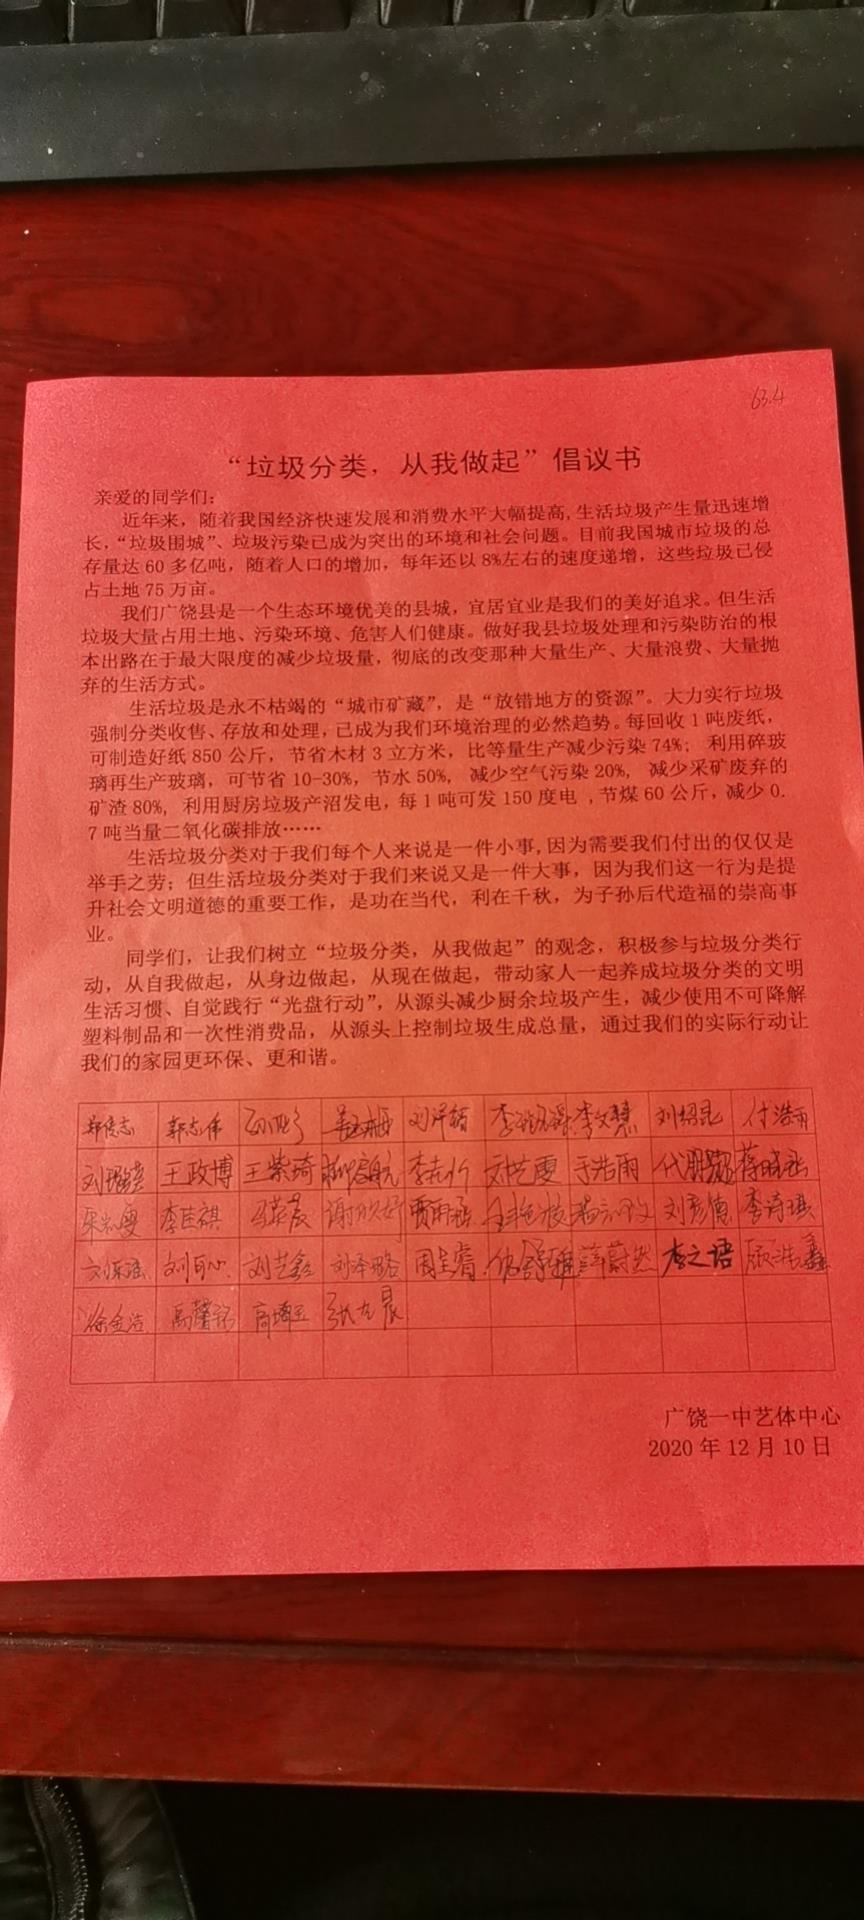 63.4
“垃圾分类，从我做起”倡议书
亲爱的同学们：
近年来，随着我国经济快速发展和消费水平大幅提高,生活垃圾产生量迅速增
长,“垃圾围城”、垃圾污染已成为突出的环境和社会问题。目前我国城市垃圾的总
存量达 60 多亿吨，随着人口的增加，每年还以 8%左右的速度递增，这些垃圾已侵
占土地 75 万亩。
我们广饶县是一个生态环境优美的县城，宜居宜业是我们的美好追求。但生活
垃圾大量占用土地、污染环境、危害人们健康。做好我县垃圾处理和污染防治的根
本出路在于最大限度的减少垃圾量，彻底的改变那种大量生产、大量浪费、大量抛
弃的生活方式。
生活垃圾是永不枯竭的“城市矿藏”，是“放错地方的资源”。大力实行垃圾
强制分类收售、存放和处理，已成为我们环境治理的必然趋势。每回收 1 吨废纸，
可制造好纸 850 公斤，节省木材 3 立方米，比等量生产减少污染 74%； 利用碎玻
璃再生产玻璃，可节省 10-30%，节水 50%， 减少空气污染 20%， 减少采矿废弃的
矿渣 80%, 利用厨房垃圾产沼发电，每 1 吨可发 150 度电 , 节煤 60 公斤，减少 0.
7 吨当量二氧化碳排放……
生活垃圾分类对于我们每个人来说是一件小事,因为需要我们付出的仅仅是
举手之劳；但生活垃圾分类对于我们来说又是一件大事，因为我们这一行为是提
升社会文明道德的重要工作，是功在当代，利在千秋，为子孙后代造福的崇高事
业。
同学们，让我们树立“垃圾分类，从我做起”的观念，积极参与垃圾分类行
动，从自我做起，从身边做起，从现在做起，带动家人一起养成垃圾分类的文明
生活习惯、自觉践行“光盘行动”，从源头减少厨余垃圾产生，减少使用不可降解
塑料制品和一次性消费品，从源头上控制垃圾生成总量，通过我们的实际行动让
我们的家园更环保、更和谐。
郭志伟 李文慧 刘绍昆 付浩雨
王政博 王紫琦 刘艺雯 于浩雨
李佳祺 谢欣妤 刘彦德 李诗琪
刘可心 刘艺鑫 刘泽璐 薛蔚然 李之语
徐金浩 高馨铭
广饶一中艺体中心
2020 年 12 月 10 日